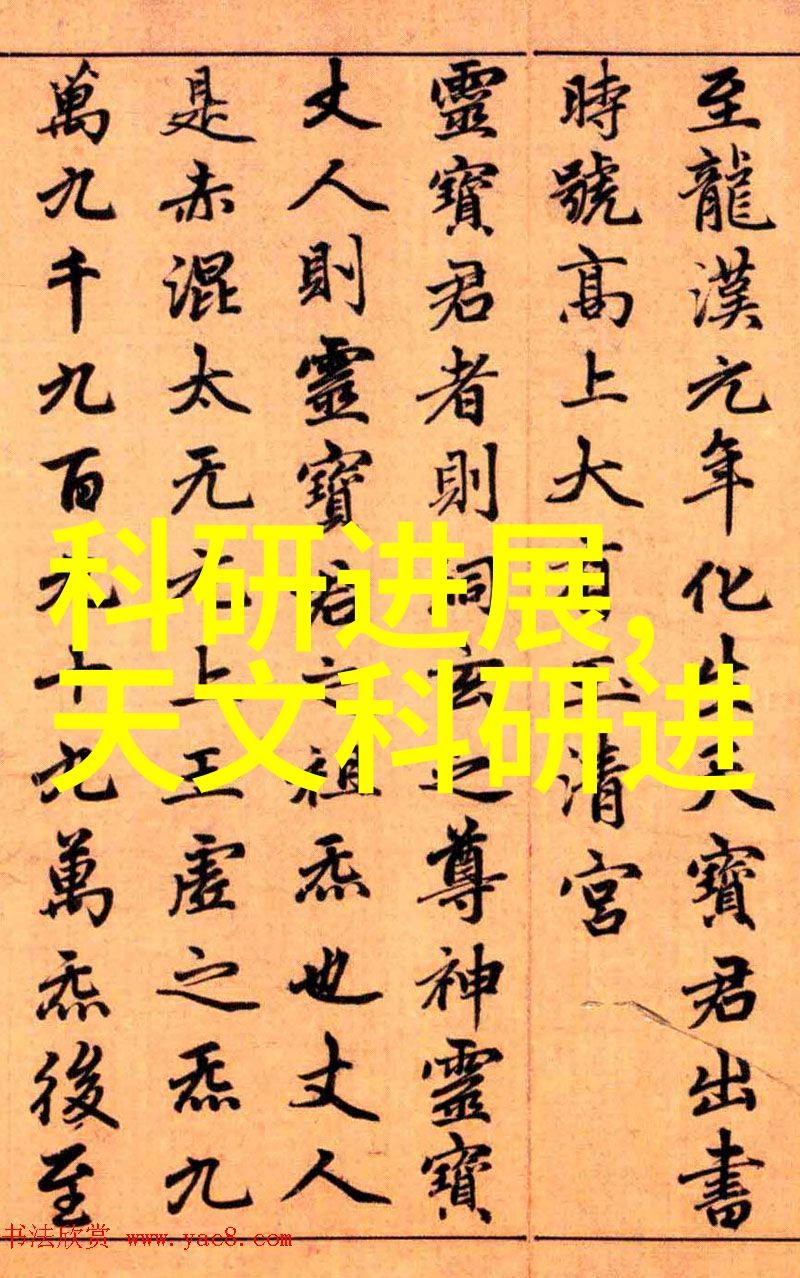 至龍漢元年化生天寶君出書
時號高上大有玉清宮
靈寶君者則洞玄之尊神靈寶
丈人則靈寶君之祖炁也丈人
是赤混太无元上玉虛之炁九
萬九千九百九十九萬炁後至
科研进展,
天文科研进
书法欣赏 www.yac8.com